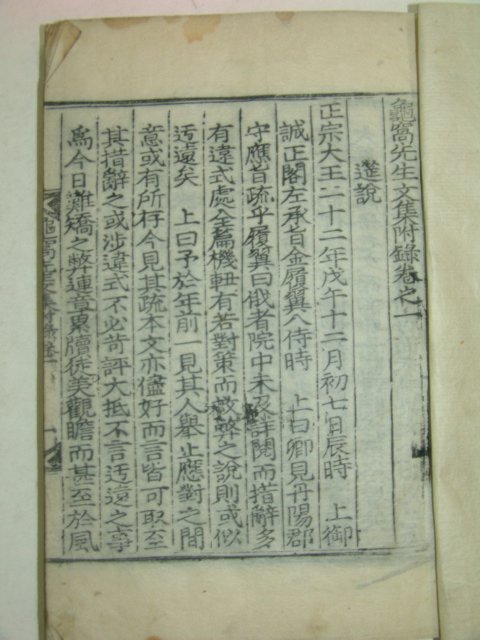 龜窩先生文集附錄卷之一
筵說
正宗大王二十二年戊午十二月初七日辰時 上御
誠正閣左承旨金履翼入侍時 上曰卿見丹陽郡
守應旨疏乎履翼曰戢者院中未及詳閱而措辭多
有違式處全篇機軸有若對策而救弊之說則或似
迂遠矣 上曰予於年前一見其人擧止應對之間
意或有所存今見其疏本文亦儘好而言皆可取至
其措辭之或涉違式不必苛評大抵不言迂遠之事
爲今日難矯之弊連章累牘徒美觀瞻而甚至於風